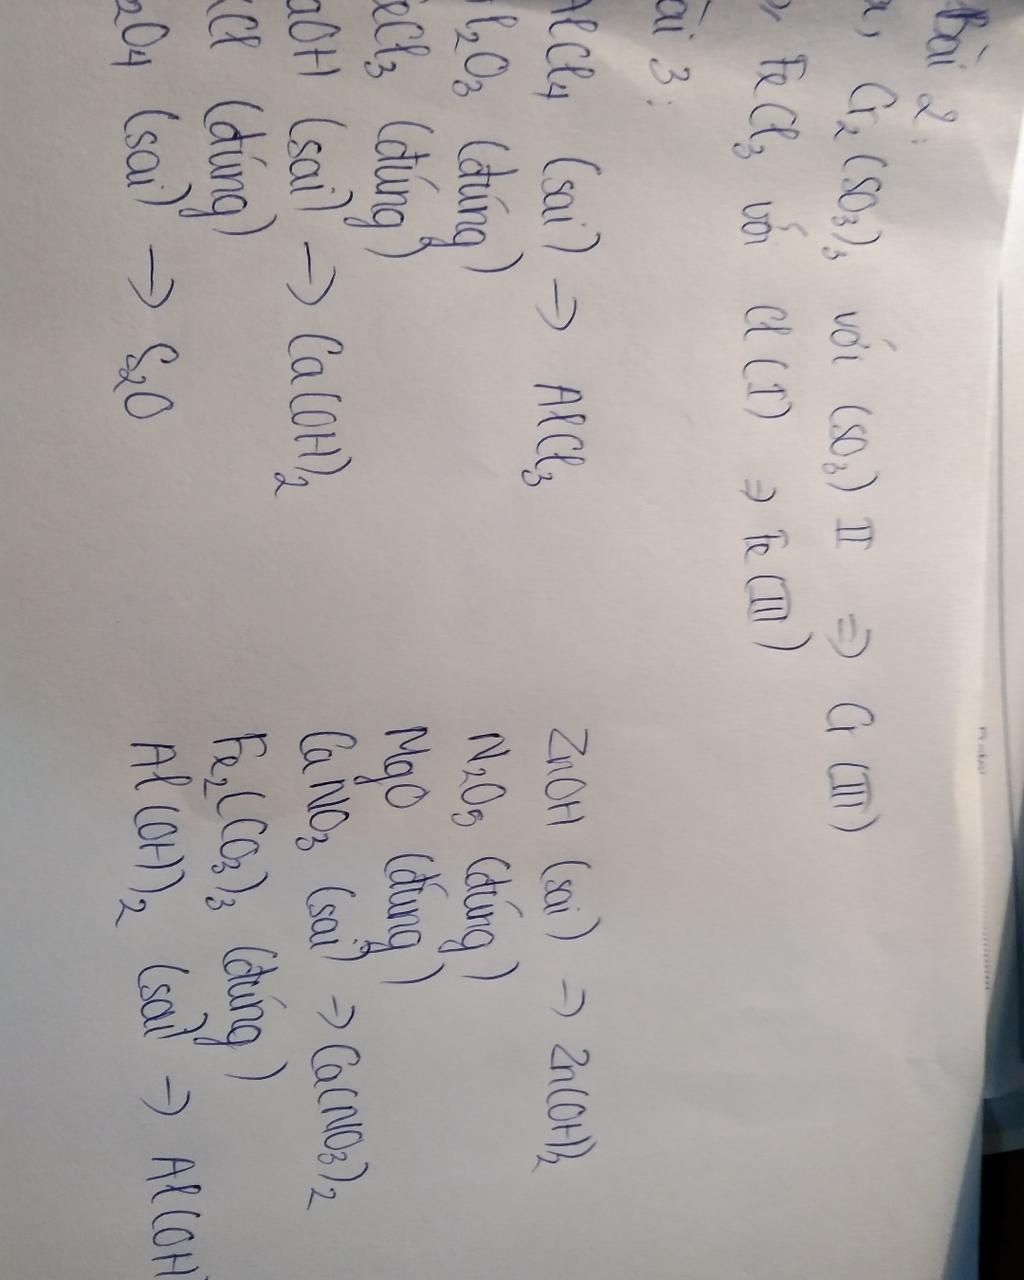 Bài 2:
a, Cr₂(SO₃)₃ với (SO₃) II => Cr (III)
, FeCl₃ với Cl (I) => Fe (III)
ài 3:
AlCl₄ (sai) -> AlCl₃
l₂O₃ (đúng)
eCl₃ (đúng)
aOH (sai) -> Ca(OH)₂
Cl (đúng)
₂O₄ (sai) -> S₂O
ZnOH (sai) -> Zn(OH)₂
N₂O₅ (đúng)
MgO (đúng)
CaNO₃ (sai) -> Ca(NO₃)₂
Fe₂(CO₃)₃ (đúng)
Al(OH)₂ (sai) -> Al(OH)